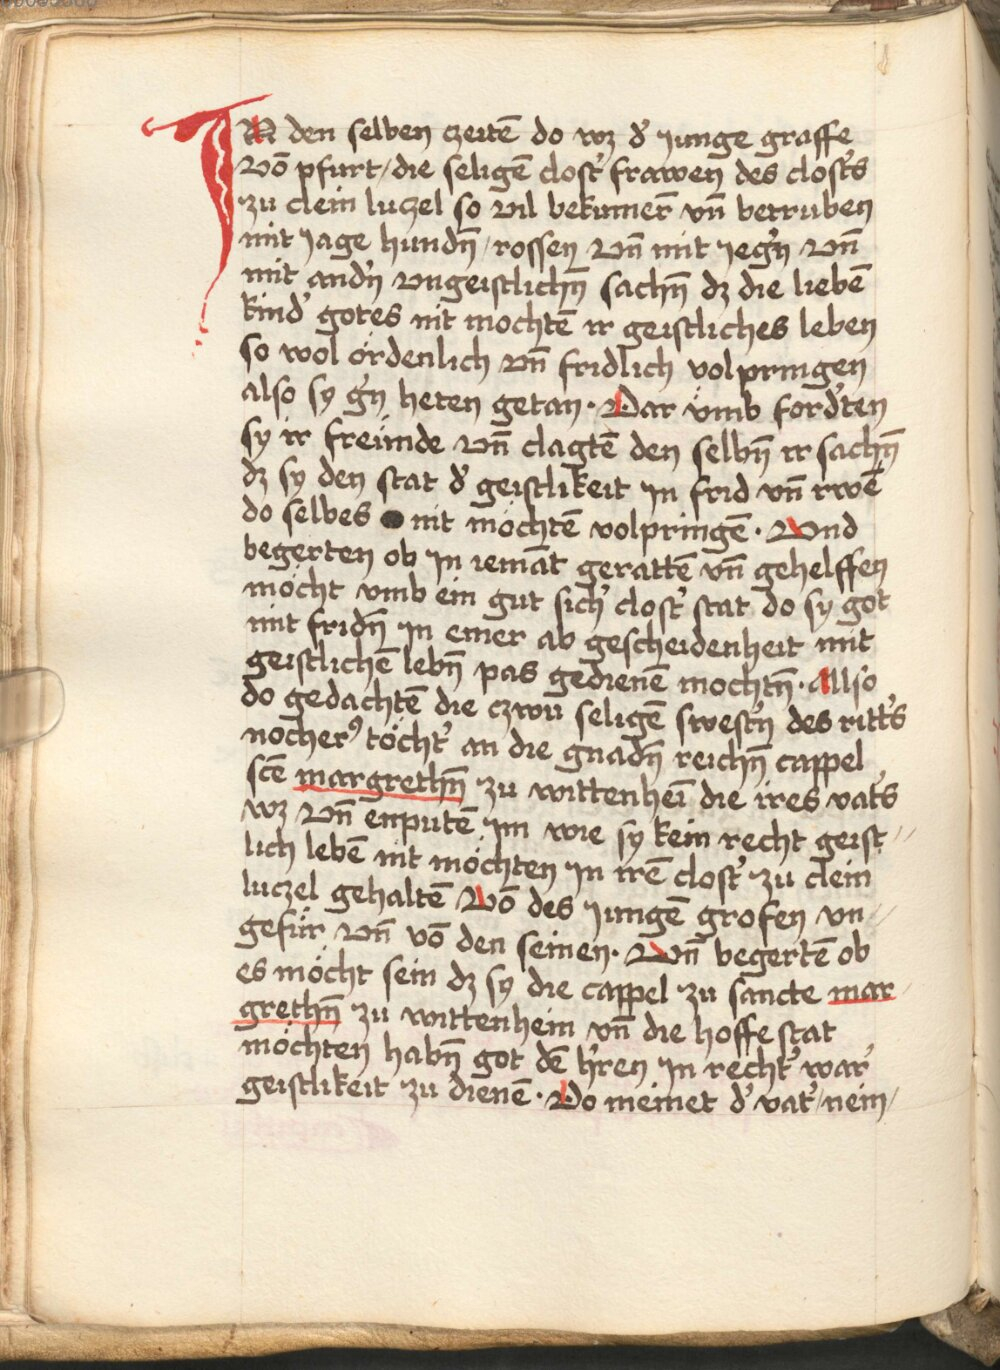 IN den selben czeitē do wz d' junge graffe
Vō pfurt / die seligē clost' frawen des clost's
zu clein luczel so vil bekumer̄ vn̄ betruben
mit jage hundn̄ / rossen Vn̄ mit jeg'n Vn̄
mit and'n vngeistlichn̄ sachn̄ dz die liebē
kind' gotes nit mochtē ir geistliches leben
so wol ordenlich vn̄ fridlich volpringen
also sy g'n heten getan · Dar vmb ford'ten
sy ir freunde Vn̄ clagtē den selbn̄ ir sachn̄
dz sy den stat d' geistlikeit jn frid vn̄ rwē
do selbes nit möchtē volpringē · Vnd
begerten ob jn iemāt gerattē vn̄ gehelffen
möcht vmb ein gut sich' clost' stat do sy got
mit fridn̄ jn einer ab gescheidenheit mit
geistlichē lebn̄ pas gedienē mochtn̄ · Allso
do gedachtē die czwu seligē swest'n des ritt's
nocherꝰ töcht' an die gnadn̄ reichn̄ cappel
scē margrethn̄ zu wittenheī die ires vat's
wz Vn̄ enputē jm wie sy kein recht geist //
lich lebē nit möchten jn irē clost' zu clein
luczel gehaltē Vō des jungē grofen vn //
gefür Vn̄ vō den seinen · Vn̄ begertē ob
es möcht sein dz sy die cappel zu sancte mar /
grethn̄ zu wittenhein vn̄ die hoffe stat
möchten habn̄ got dē h'ren jn recht' war'
geistlikeit zu dienē · Do meinet d' vat' / nein /